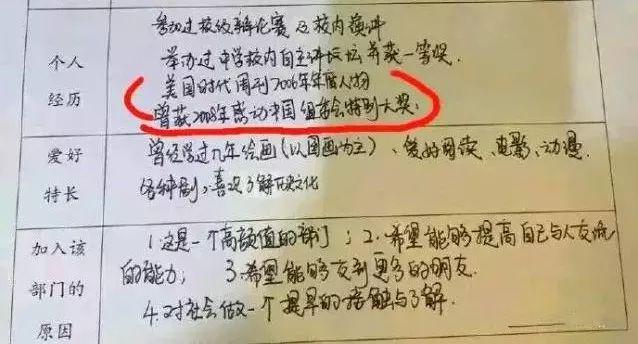 参加过校级辩论赛及校内演讲
个人
经历
举办过中学校内自主讲坛坛并获一等奖.
美国时代周刊2006年年度人物
曾获2008年感动中国组委会特别大奖.
爱好
特长
曾经学过几年绘画(以国画为主)、爱好阅读、电影、动漫.
各种剧,喜欢了解历史文化
加入该
部门的
原因
1.这是一个高颜值的部门;2.希望能够提高自己与人交流
的能力;3.希望能够交到更多的朋友.
4.对社会做一个提早的接触与了解.